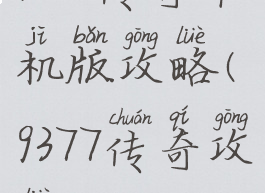 jī bǎn gōng lüè
机版攻略(
chuán qí gōng
9377传奇攻